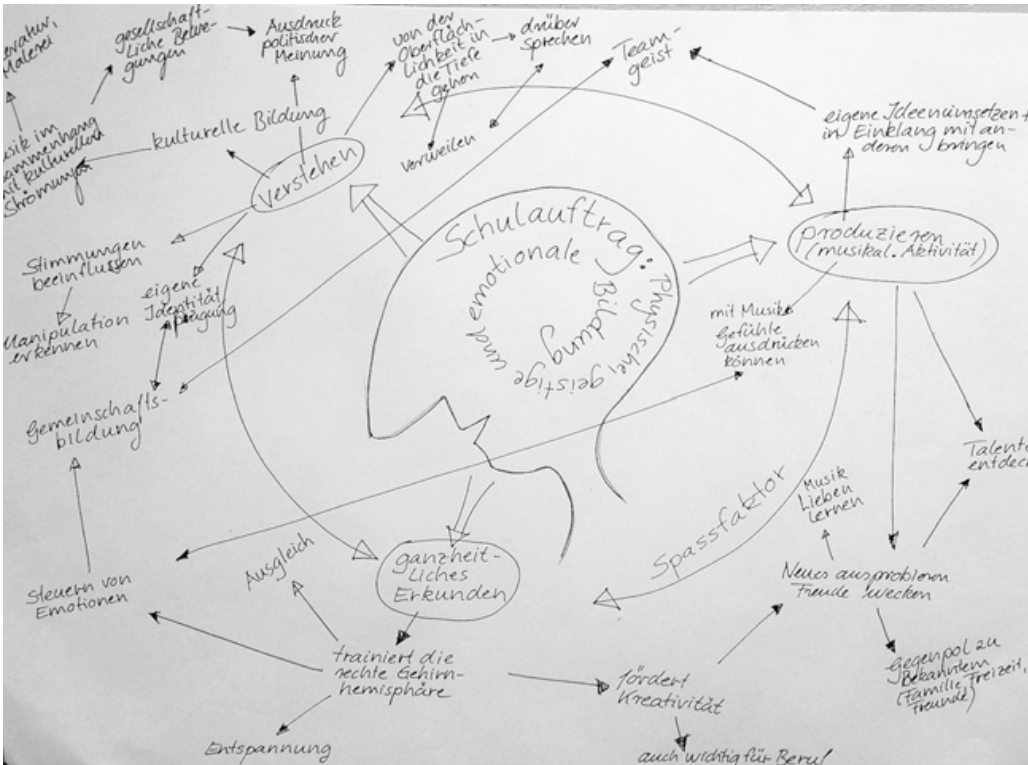 Malerei
gesellschaft-
liche Bewe-
gungen
Ausdruck
politischer
Meinung
von der
Oberfläch-
lichkeit in
die Tiefe
gehen
drüber
sprechen
Team-
geist
eigene Ideen umsetzen +
in Einklang mit an-
deren bringen
kulturelle Bildung
verweilen
verstehen
mit kulturellen
Strömungen
Schulauftrag:
Physische, geistige und
emotionale
Bildung
produzieren
(musikal. Aktivität)
Stimmungen
beeinflussen
eigene
Identität
prägung
Manipulation
erkennen
mit Musik
Gefühle
ausdrücken
können
Gemeinschafts-
bildung
Talente
Musik
lieben
lernen
Spassfaktor
ganzheit-
liches
Erkunden
Ausgleich
Steuern von
Emotionen
Neues ausprobieren
Freude wecken
trainiert die
rechte Gehirn-
hemisphäre
fördert
Kreativität
Gegenpol zu
Bekanntem
(Familie, Freizeit,
Freunde)
Entspannung
auch wichtig für Beruf